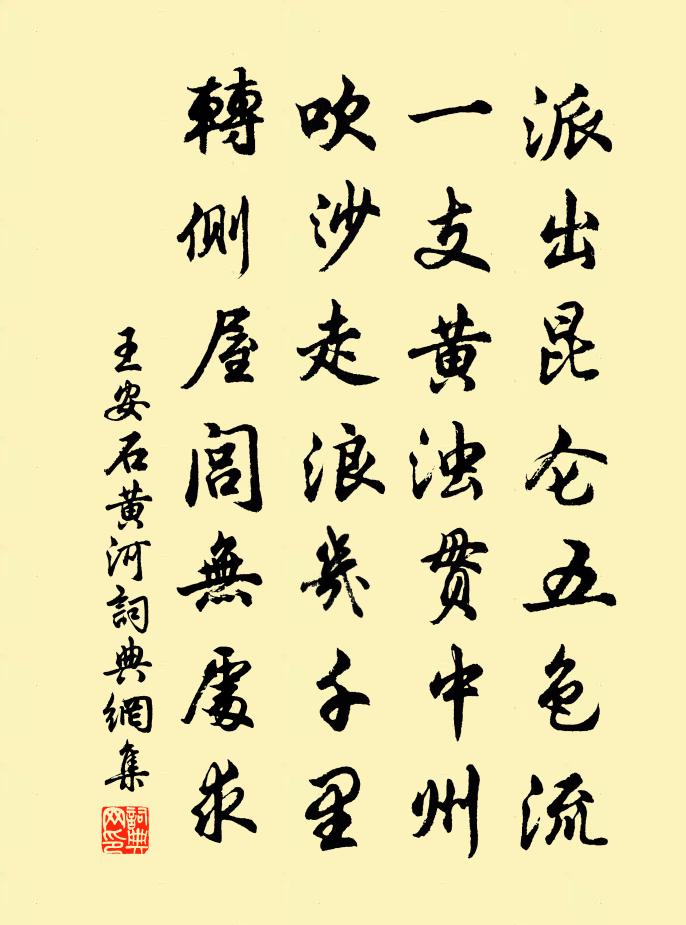 派出昆仑五色流
一支黄浊贯中州
吹沙走浪幾千里
轉側屋閭無處求
王安石黄河詞典網集
詞典网印